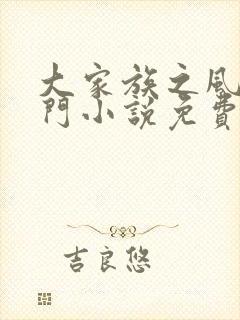 大家族之風
門小說免費
吉良悠